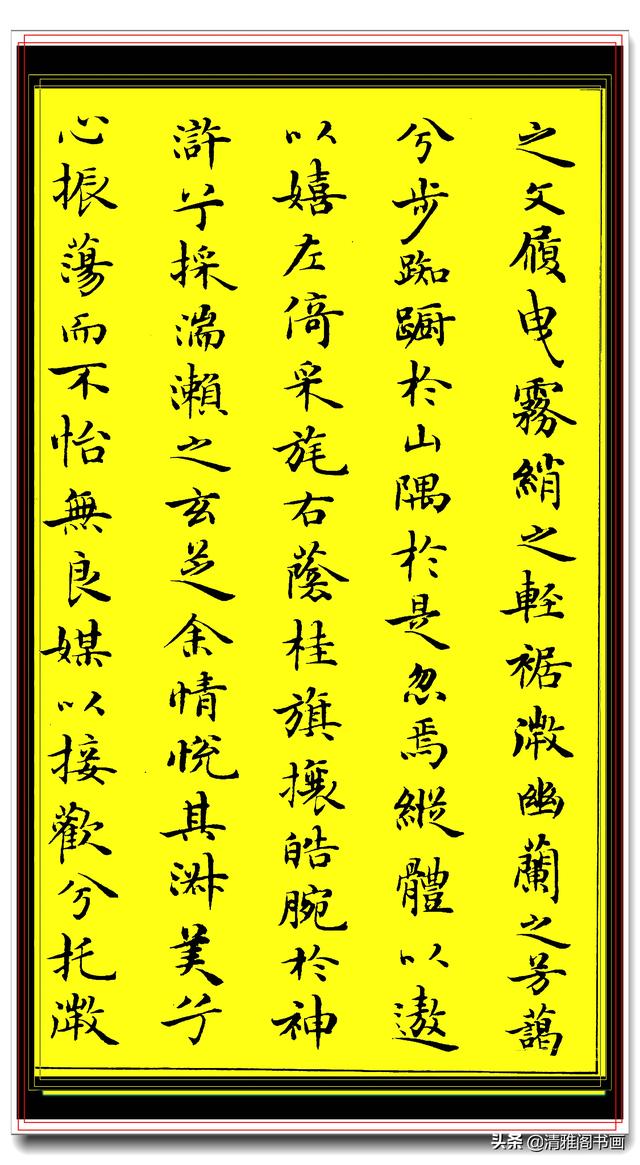 之文履曳霧綃之輕裾微幽蘭之芳藹
兮步踟蹰於山隅於是忽焉縱體以遨
以嬉左倚采旄右蔭桂旗攘皓腕於神
滸兮採湍瀨之玄芝余情悅其淑美兮
心振蕩而不怡無良媒以接歡兮托微
头条 @清雅阁书画